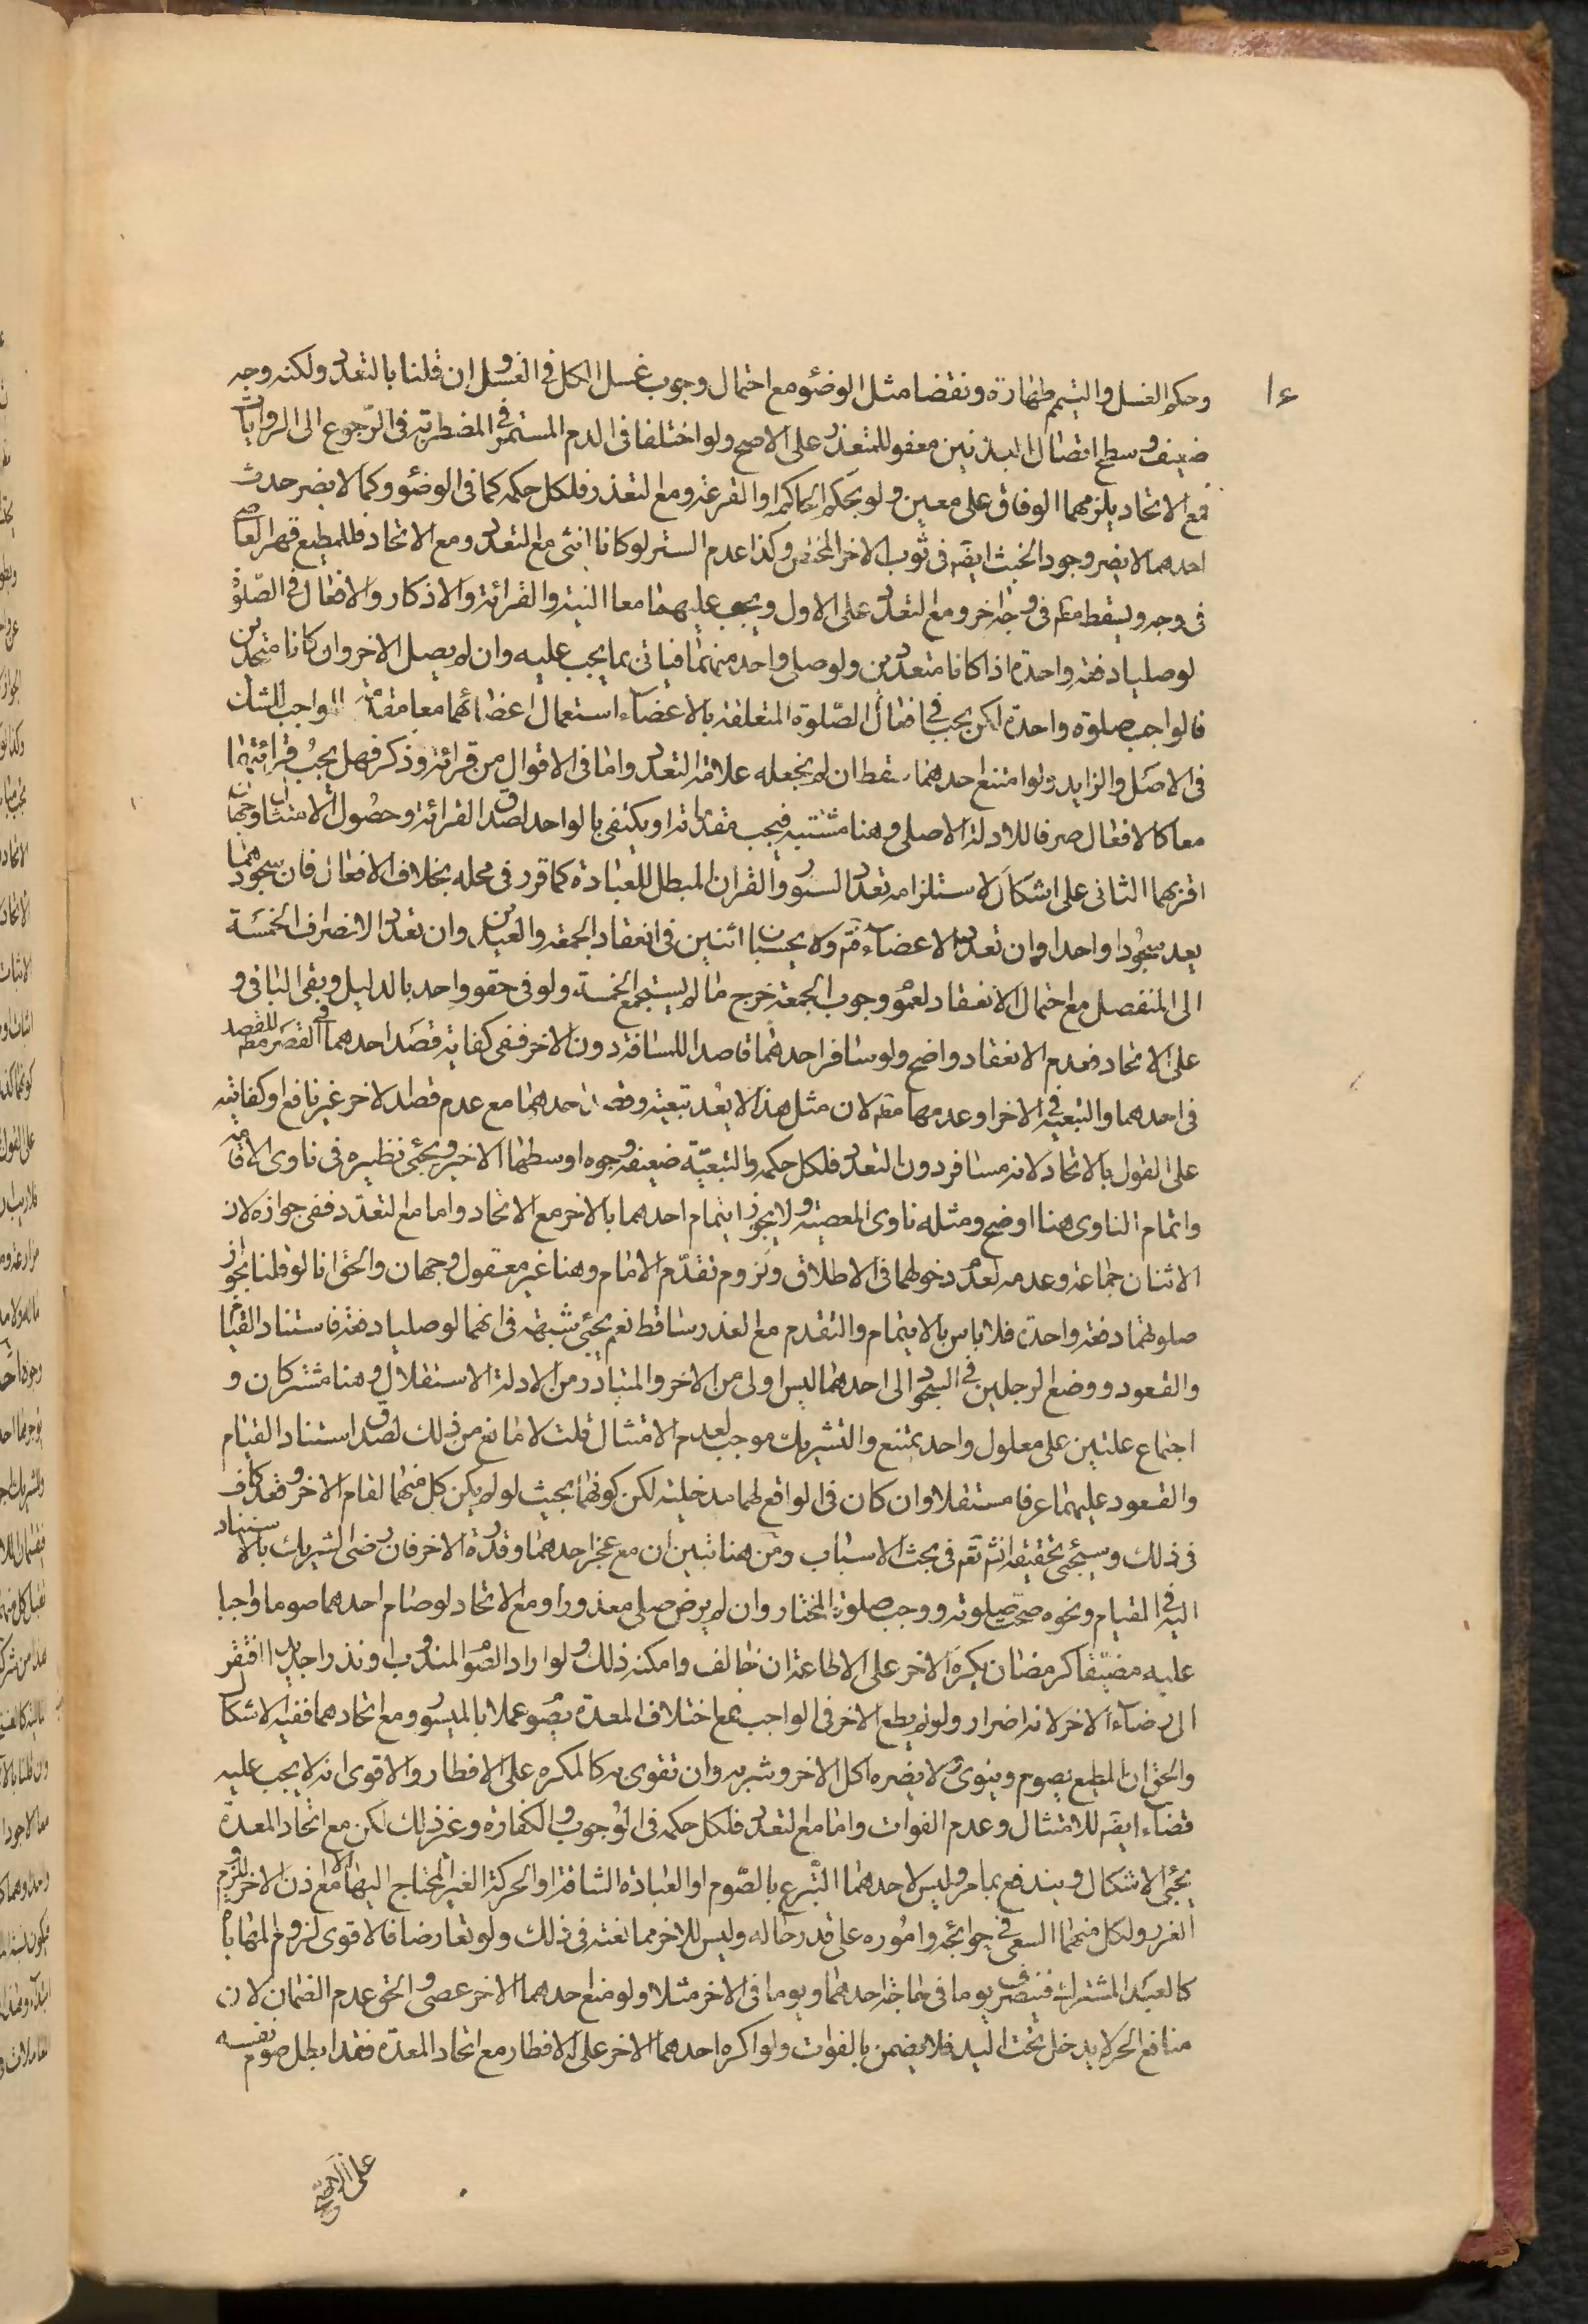 وحكم الغسل والتيمم طهارة ونقضا مثل الوضوء مع احتمال وجوب غسل الكل في الغسل وان قلنا بالتعدد ولكنه وجه
ضعيف وسطح اتصال البدنين معفو للمتعذر على الاصح ولو اختلفا في الدم المستمر في المضطربة في الرجوع الى الروايات
فمع الاتحاد يلزمهما الوفاق على معين ولو بحكم الحاكم او القرعة ومع التعدد فلكل حكمه كما في الوضوء وكما لا يضر حدث
احدهما لا يضر وجود الخبث ايضه في ثوب الاخر المختص وكذا عدم الستر لو كانا انثى مع التعدد ومع الاتحاد فللمطيع قهر العاصي
في وجه ويسقط مقه في وجه اخر ومع التعدد على الاول ويجب عليهما معا النية والقرائة والاذكار والافعال في الصلوة
لو صليا دفعة واحدة اذا كانا متعددين ولو صلى واحد منهما فياتى بما يجب عليه وان لم يصل الاخر وان كانا متحدين
فالواجب صلوة واحدة لكن يجب في افعال الصلوة المتعلقة بالاعضاء استعمال اعضائهما معا مقدمة للواجب للشك
في الاصل والزايد ولو امتنع احدهما سقط ان لم يجعله علامة التعدد واما في الاقوال من قرائة وذكر فهل يجب قرائتهما
معا كالافعال صرفا للادلة الاصلى وهنا مشتبه فيجب مقدمة او يكتفى بالواحد لصدق القرائة وحصول الامتثال وجهان
اقربهما الثانى على اشكال لاستلزامه تعدد السور والقران المبطل للعبادة كما قرر في محله بخلاف الافعال فان سجودهما
يعد سجودا واحدا وان تعدد الاعضاء ثم ولا يحسبان اثنين في انعقاد الجمعة والعيدين وان تعدد الانصراف الخمسة
الى المنفصل مع احتمال الانعقاد لعموم وجوب الجمعة خرج ما لم يستجمع الخمسة ولو في حقو واحد بالدليل وبقى الباقي و
على الاتحاد فعدم الانعقاد واضح ولو سافر احدهما قاصدا للمسافة دون الاخر ففي كفاية قصد احدهما في القصر مقه للقصد
في احدهما والتبعية في الاخر او عدمها مقه لان مثل هذا لا يعد تبعية وقصد احدهما مع عدم قصد الاخر غير نافع او كفايته
على القول بالاتحاد لانه مسافر دون التعدد فلكل حكمه والتبعية ضعيفة وجوه اوسطها الاخير ويجئى نظيره في ناوى الاقامة
واتمام الناوى هنا اوضح ومثله ناوى المعصية ولا يجوز ايتمام احدهما بالاخر مع الاتحاد واما مع التعدد ففي جوازه لان
الاثنان جماعة وعدمه لعدم دخولهما في الاطلاق ولزوم تقدم الامام وهنا غير معقول وجهان والحق انا لو قلنا بجواز
صلوتهما دفعة واحدة فلا باس بالايتمام والتقدم مع العذر ساقط نعم يجئى شبهة في انهما لو صليا دفعة فاستناد القيام
والقعود ووضع الرجلين في السجود الى احدهما ليس اولى من الاخر والمتبادر من الادلة الاستقلال وهنا مشتركان و
اجتماع علتين على معلول واحد يمتنع والتشريك موجب لعدم الامتثال قلت لا مانع من ذلك لصدق استناد القيام
والقعود عليهما عرفا مستقلا وان كان في الواقع لهما مدخلية لكن كونهما بحيث لو لم يكن كل منهما لقام الاخر وقعد كاف
في ذلك وسيجئى تحقيقه انش تعه في بحث الاسباب ومن هنا تبين ان مع عجز احدهما وقدرة الاخر فان رضى الشريك بالاستناد
اليه في القيام ونحوه صحت صلوته ووجب صلوة المختار وان لم يرض صلى معذورا ومع الاتحاد لو صام احدهما صوما واجبا
عليه مضيقا كرمضان يكره الاخر على الاطاعة ان خالف وامكنه ذلك ولو اراد الصوم المندوب او نذرا جديدا افتقر
الى رضاء الاخر لانه اضرار ولو لم يطع الاخر في الواجب فمع اختلاف المعدة يصوم عملا بالميسور ومع اتحادهما ففيه الاشكال
والحق ان المطيع يصوم وينوى ولا يضره اكل الاخر وشربه وان تقوى به كالمكره على الافطار والاقوى انه لا يجب عليه
قضاء ايضه للامتثال وعدم الفوات واما مع التعدد فلكل حكمه في الوجوب والكفارة وغير ذلك لكن مع اتحاد المعدة
يجئى الاشكال ويندفع بما مر وليس لاحدهما التبرع بالصوم او العبادة الشاقة او الحركة الغير المحتاج اليها الا مع اذن الاخر للزوم
الضرر ولكل منهما السعى في حوائجه واموره على قدر حاله وليس للاخر ممانعته في ذلك ولو تعارضا فالاقوى لزوم المهاياة
كالعبد المشترك فينصرف يوما في حاجة احدهما ويوما في الاخر مثلا ولو منع احدهما الاخر عصى والحق عدم الضمان لان
منافع الحر لا يدخل تحت اليد فلا يضمن بالفوات ولو اكره احدهما الاخر على الافطار مع اتحاد المعدة فقد ابطل صوم نفسه